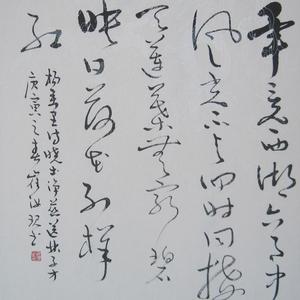 畢竟西湖六月中
風光不与四时同接
天蓮葉無窮碧
映日荷花别樣
红
杨万里诗晓出净慈送林子方
庚寅之春崔书